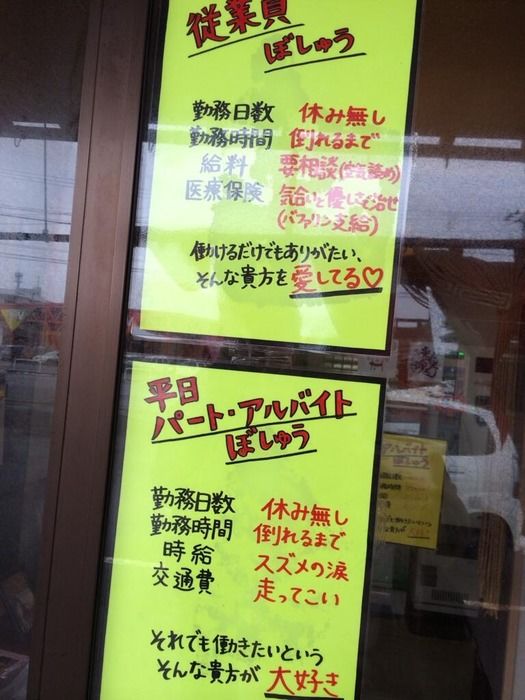 従業員
ぼしゅう
勤務日数 休み無し
勤務時間 倒れるまで
給料 要相談
医療保険 気合いと優しさで治せ
(バファリン支給)
働けるだけでもありがたい、
そんな貴方を愛してる♡
平日
パート・アルバイト
ぼしゅう
勤務日数 休み無し
勤務時間 倒れるまで
時給 スズメの涙
交通費 走ってこい
それでも働きたいという
そんな貴方が 大好き
アルバイト
ぼしゅう